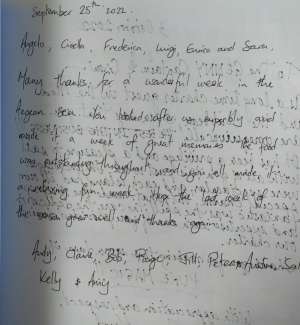 September 25th 2022.
Angelo, Cinella, Frederica, Luigi, Enrico and Sara.
Many thanks for a wonderful week in the
Aegean sea. You looked after us superbly and
made week of great memories. The food
was outstanding throughout and well made,
a relaxing fun week. Hope the last week of
the season goes well and thanks again
Andy, Claire, Bob, Paige, Jill, Peter
Kelly & Amy